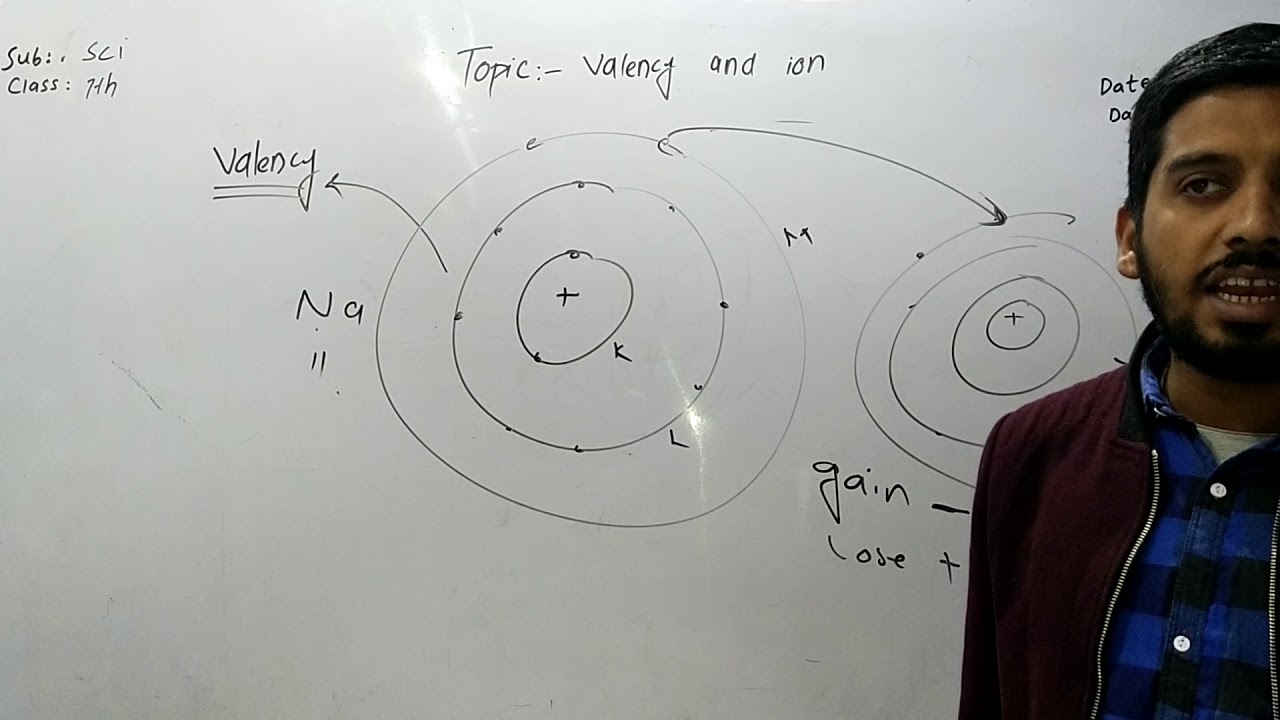 Sub:. Sci
Class: 7th
Topic:- Valency and ion
Date
Da
Valency
M
Na
11
+
K
L
+
gain –
lose +